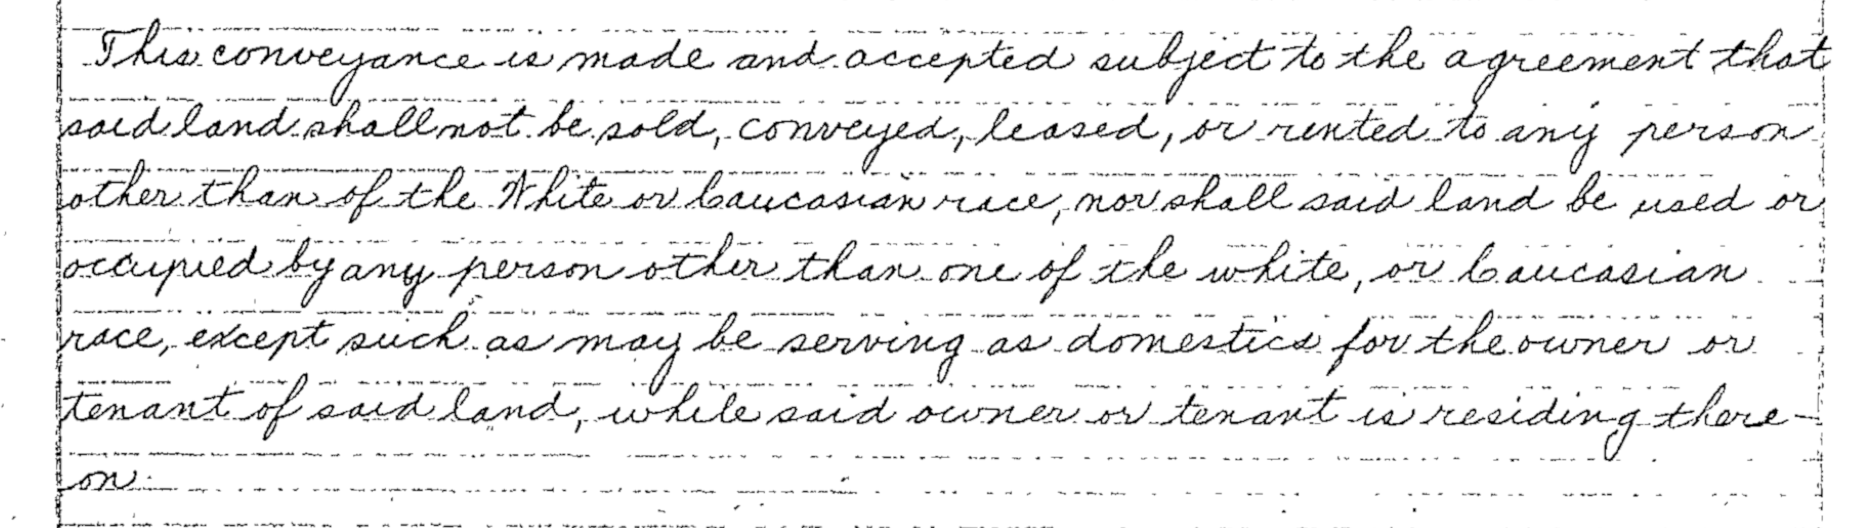 This conveyance is made and accepted subject to the agreement that
said land shall not be sold, conveyed, leased, or rented to any person
other than of the White or Caucasian race, nor shall said land be used or
occupied by any person other than one of the white, or Caucasian
race, except such as may be serving as domestics for the owner or
tenant of said land, while said owner or tenant is residing there-
on.